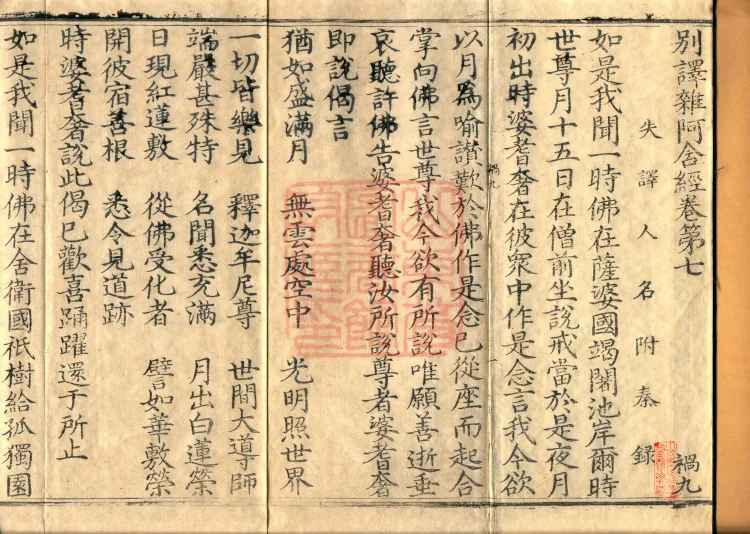 別譯雜阿含經卷第七 禍九
失譯人名附秦録
如是我聞一時佛在薩婆國竭闍池岸爾時
世尊月十五日在僧前坐說戒當於是夜月
初出時婆耆奢在彼衆中作是念言我今欲
禍九
以月爲喻讃歎於佛作是念已從座而起合
掌向佛言世尊我今欲有所說唯願善逝垂
哀聽許佛告婆耆奢聽汝所說尊者婆耆奢
即說偈言
猶如盛滿月 無雲處空中 光明照世界
一切皆樂見 釋迦牟尼尊 世間大導師
端嚴甚殊特 名聞悉充滿 月出白蓮榮
日現紅蓮敷 從佛受化者 譬如華敷榮
開彼宿善根 悉令見道跡
時婆耆奢說此偈已歡喜踊躍還于所止
如是我聞一時佛在舍衛國祇樹給孤獨園